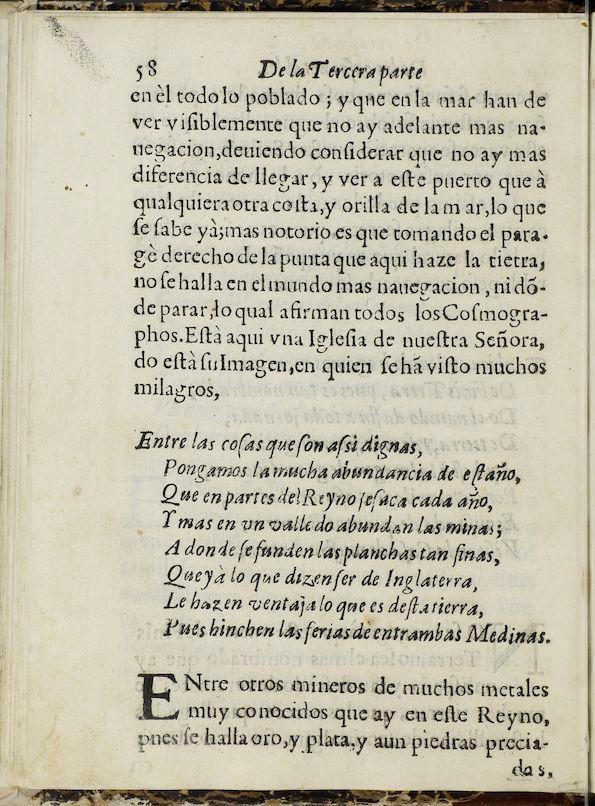 58 De la Tercera parte
en èl todo lo poblado ; y que en la mar han de
ver visiblemente que no ay adelante mas na-
uegacion, deuiendo considerar que no ay mas
diferencia de llegar, y ver a este puerto que à
qualquiera otra costa, y orilla de la mar, lo que
se sabe yà; mas notorio es que tomando el para-
gè derecho de la punta que aqui haze la tierra,
no se halla en el mundo mas nauegacion, ni dõ-
de parar, lo qual afirman todos los Cosmogra-
phos. Està aqui vna Iglesia de nuestra Señora,
do està su Imagen, en quien se hã visto muchos
milagros,
Entre las cosas que son assi dignas,
Pongamos la mucha abundancia de estaño,
Que en partes del Reyno se saca cada año,
Y mas en vn valle do abundan las minas;
A donde se funden las planchas tan finas,
Que yà lo que dizen ser de Inglaterra,
Le hazen ventaja lo que es desta tierra,
Pues hinchen las ferias de entrambas Medinas.
ENtre otros mineros de muchos metales
muy conocidos que ay en este Reyno,
pues se halla oro, y plata, y aun piedras precia-
das,